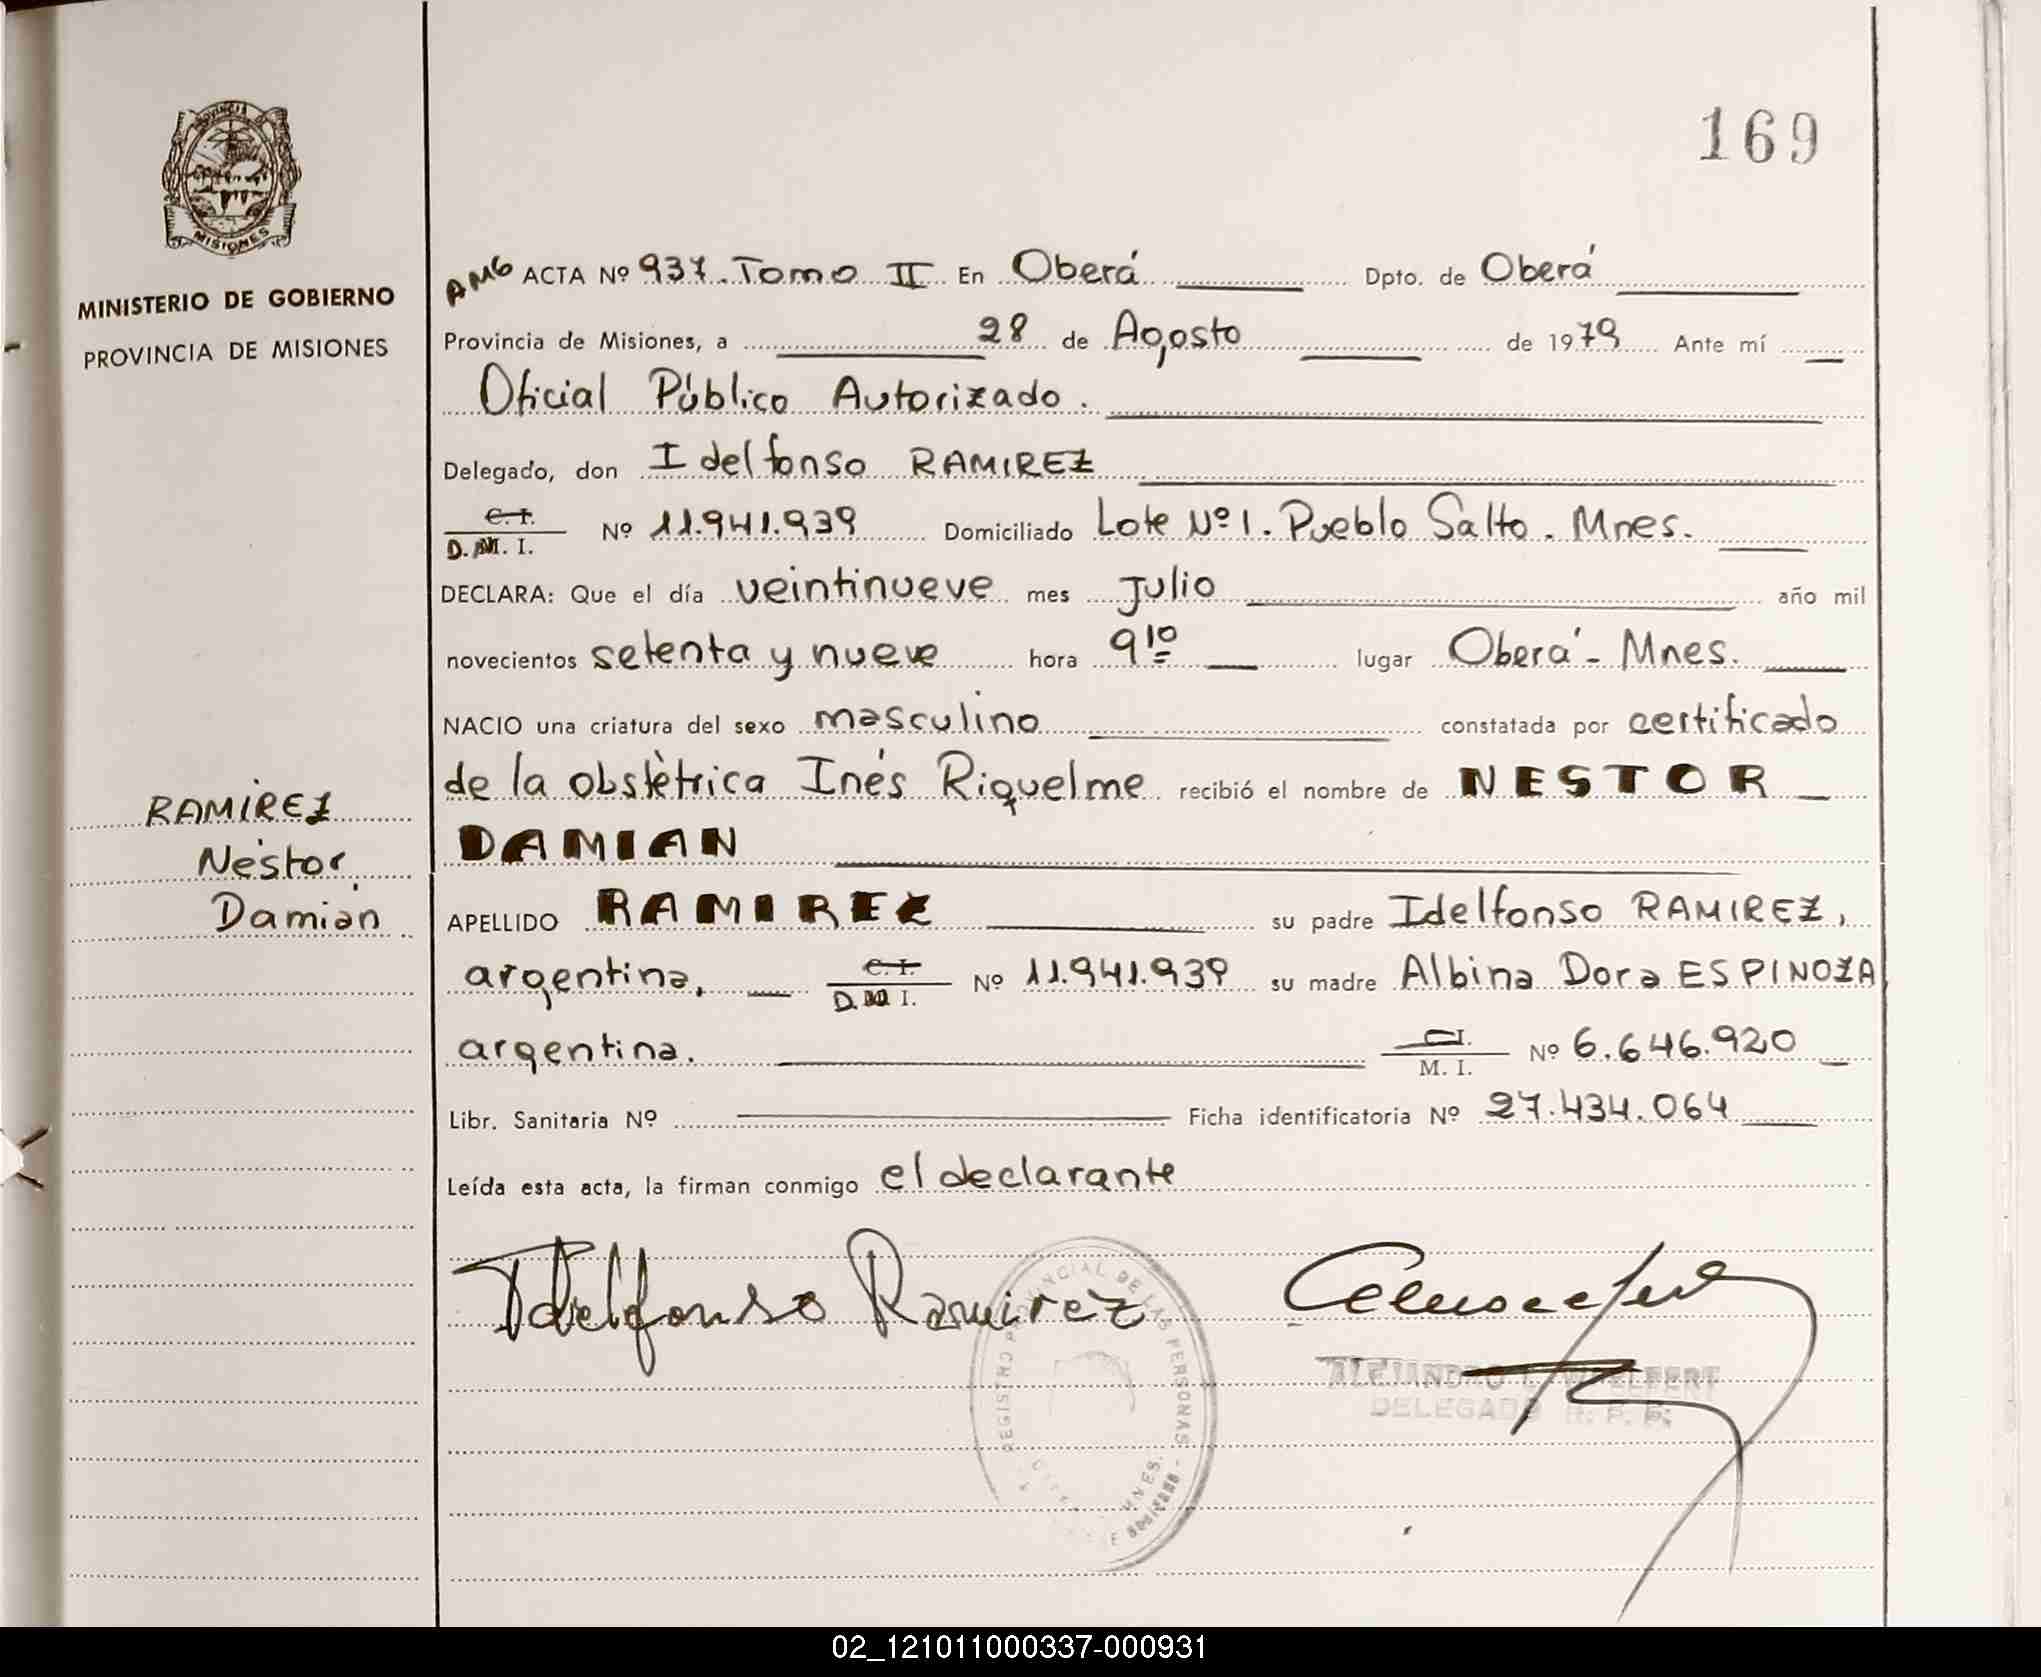 169
PROVINCIA D
MISIONES
MINISTERIO DE GOBIERNO
PROVINCIA DE MISIONES
RAMIREZ
Néstor
Damián
AMG ACTA Nº 937. Tomo II En Oberá Dpto. de Oberá
Provincia de Misiones, a 28 de Agosto de 1979 Ante mí
Oficial Público Autorizado.
Delegado, don Idelfonso RAMIREZ
C. I.
D.M. I. Nº 11.941.939 Domiciliado Lote Nº 1. Pueblo Salto. Mnes.
DECLARA: Que el día veintinueve mes Julio año mil
novecientos setenta y nueve hora 9 10 lugar Oberá - Mnes.
NACIO una criatura del sexo masculino constatada por certificado
de la obstètrica Inés Riquelme recibió el nombre de NESTOR
DAMIAN
APELLIDO RAMIREZ su padre Idelfonso RAMIREZ,
argentina, C. I. D. I. Nº 11.941.939 su madre Albina Dora ESPINOZA
argentina. C.I. M. I. Nº 6.646.920
Libr. Sanitaria Nº Ficha identificatoria Nº 27.434.064
Leída esta acta, la firman conmigo el declarante
Idelfonso Ramirez
REGISTRO PROVINCIAL DE LAS PERSONAS
MNES.
ALEJANDRO
DELEGADO R. P. P.
02_121011000337-000931